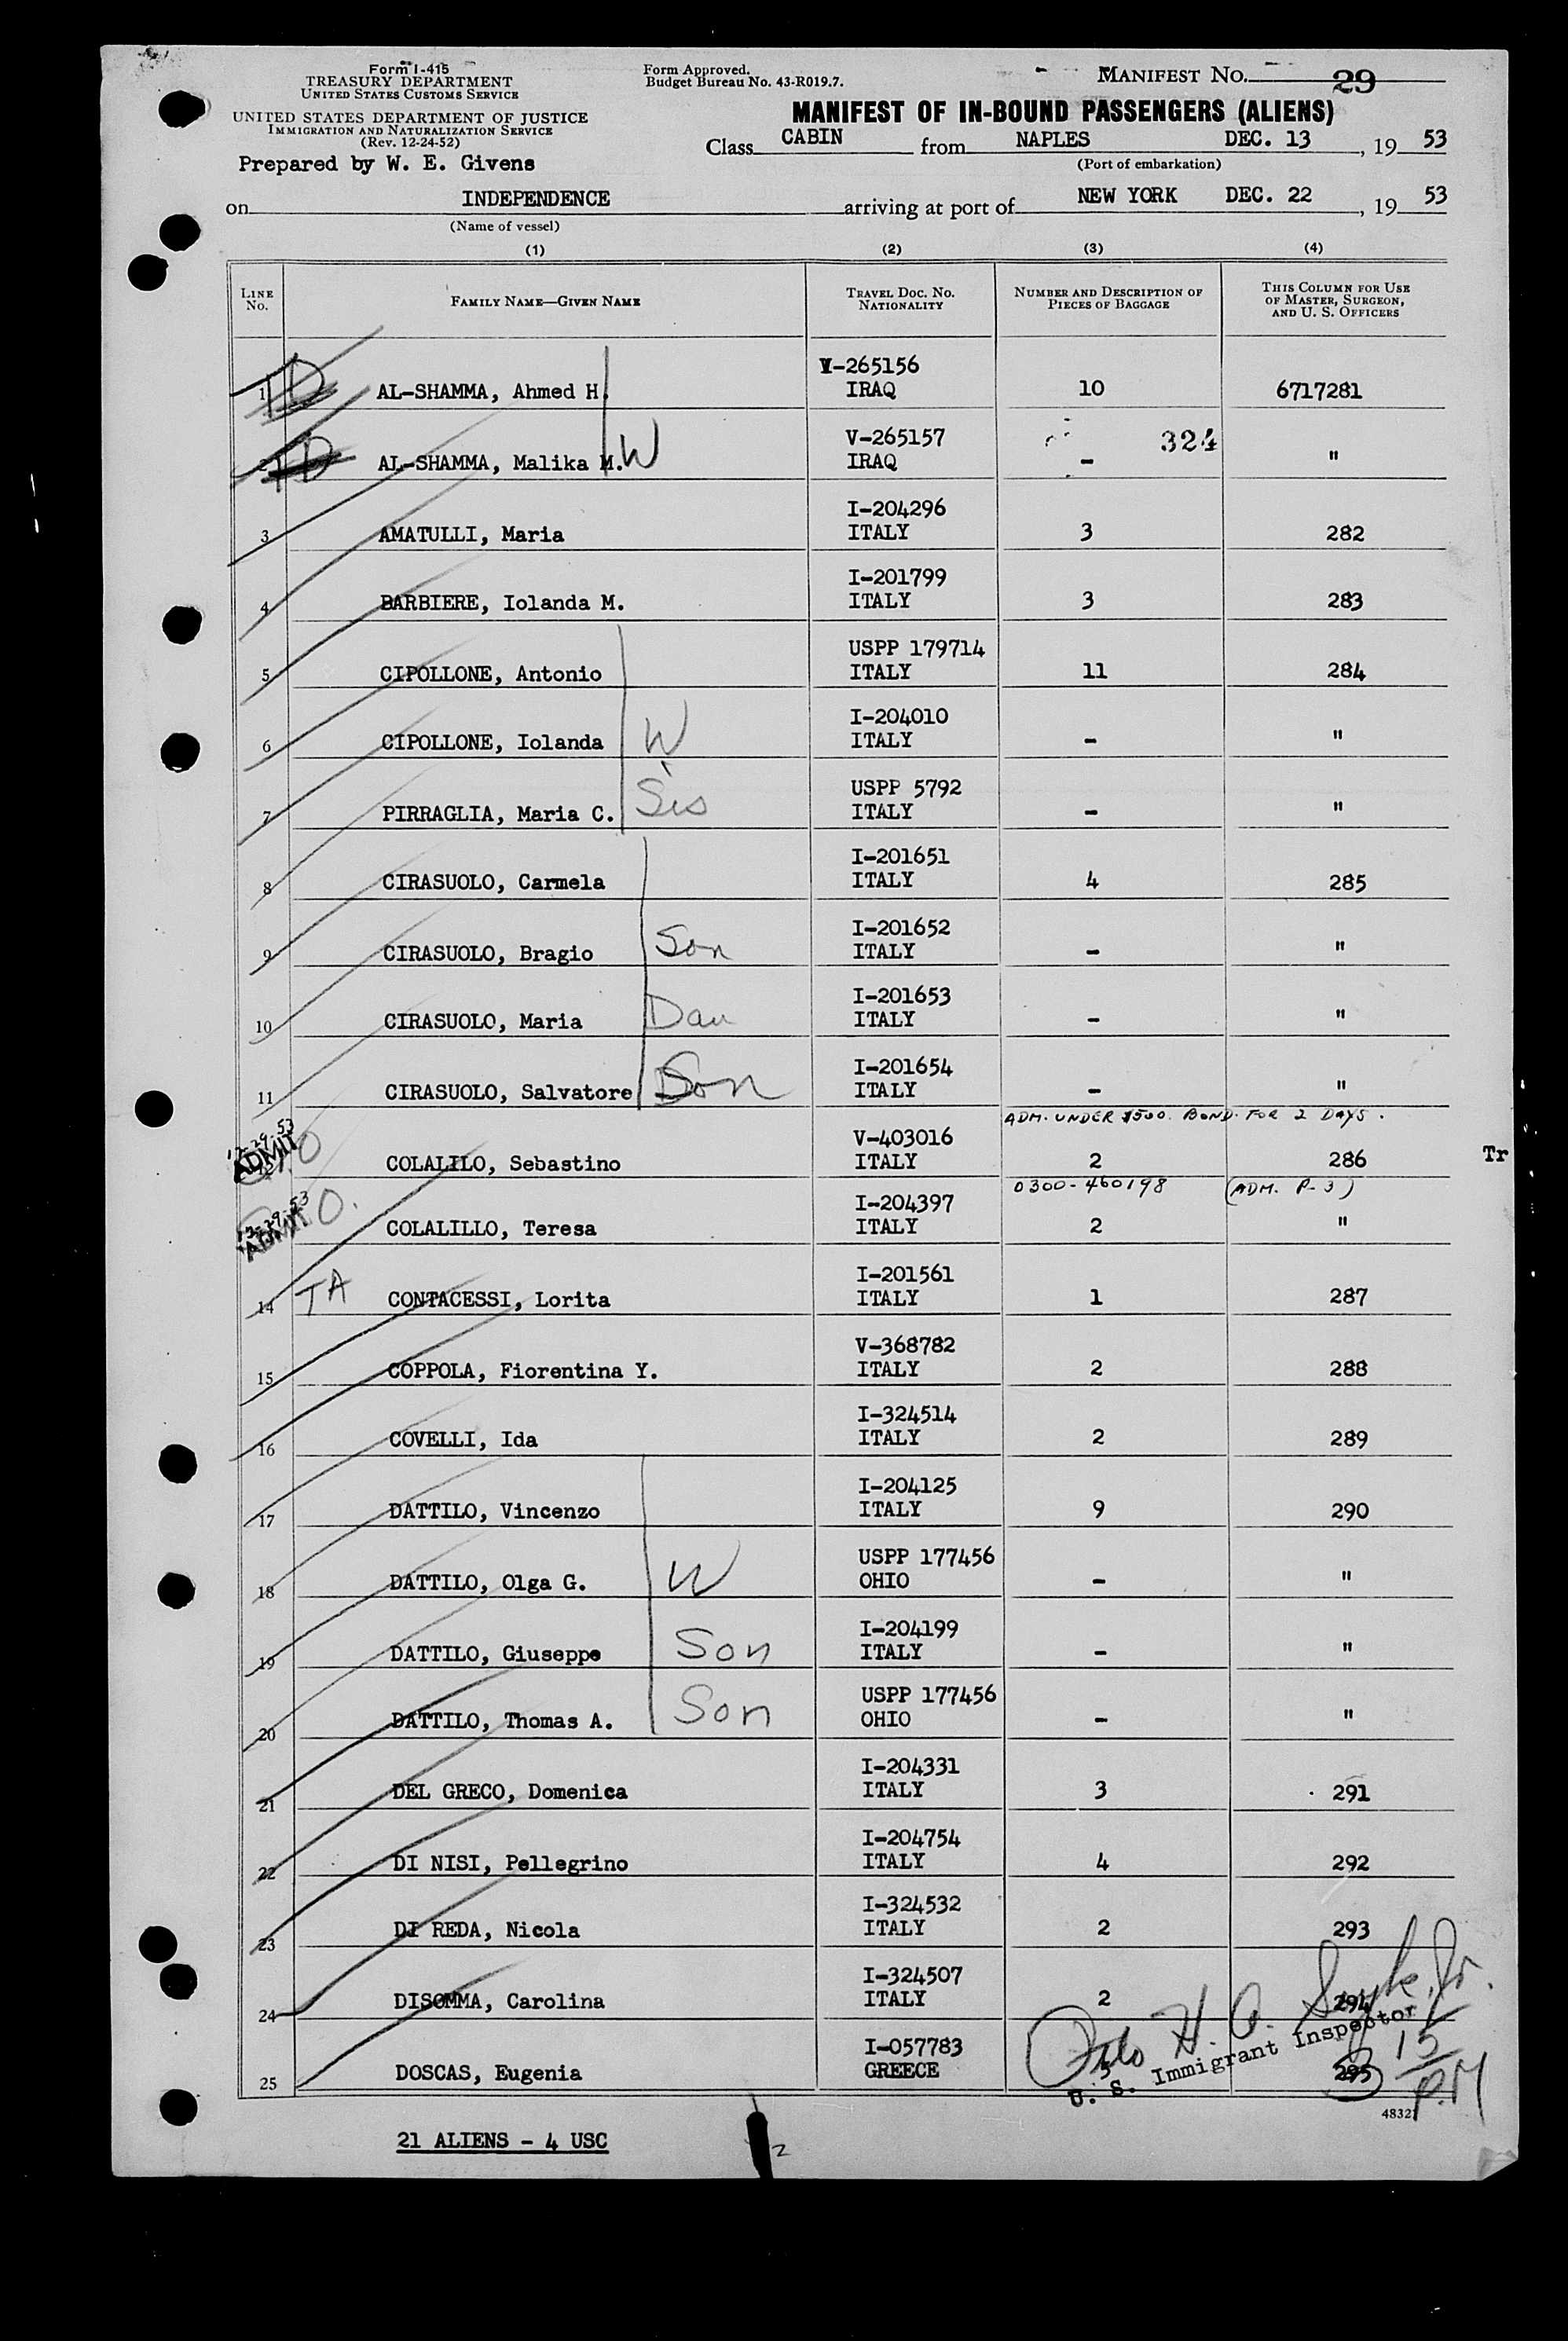 Form I-415
TREASURY DEPARTMENT
UNITED STATES CUSTOMS SERVICE
UNITED STATES DEPARTMENT OF JUSTICE
IMMIGRATION AND NATURALIZATION SERVICE
(Rev. 12-24-52)
Prepared by W. E. Givens
Form Approved.
Budget Bureau No. 43-R019.7.
MANIFEST NO. 29
MANIFEST OF IN-BOUND PASSENGERS (ALIENS)
Class CABIN from NAPLES DEC. 13, 19 53
(Port of embarkation)
on INDEPENDENCE arriving at port of NEW YORK DEC. 22, 19 53
(Name of vessel)
(1) (2) (3) (4)
LINE NO. FAMILY NAME—GIVEN NAME TRAVEL DOC. NO. NATIONALITY NUMBER AND DESCRIPTION OF PIECES OF BAGGAGE THIS COLUMN FOR USE OF MASTER, SURGEON, AND U. S. OFFICERS
V-265156
1 TD AL-SHAMMA, Ahmed H. IRAQ 10 6717281
V-265157 324
2 TD AL-SHAMMA, Malika M. W IRAQ - "
I-204296
3 AMATULLI, Maria ITALY 3 282
I-201799
4 BARBIERE, Iolanda M. ITALY 3 283
USPP 179714
5 CIPOLLONE, Antonio ITALY 11 284
I-204010
6 CIPOLLONE, Iolanda W ITALY - "
USPP 5792
7 PIRRAGLIA, Maria C. Sis ITALY - "
I-201651
8 CIRASUOLO, Carmela ITALY 4 285
I-201652
9 CIRASUOLO, Bragio Son ITALY - "
I-201653
10 CIRASUOLO, Maria Dau ITALY - "
I-201654
11 CIRASUOLO, Salvatore Son ITALY - "
ADM. UNDER $500. BOND. FOR 2 DAYS.
12-29-53
ADMIT
V-403016
COLALILO, Sebastino ITALY 2 286 Tr
0300-460198 (ADM. P-3)
12-29-53
ADMIT
I-204397
COLALILLO, Teresa ITALY 2 "
I-201561
14 TA CONTACESSI, Lorita ITALY 1 287
V-368782
15 COPPOLA, Fiorentina Y. ITALY 2 288
I-324514
16 COVELLI, Ida ITALY 2 289
I-204125
17 DATTILO, Vincenzo ITALY 9 290
USPP 177456
18 DATTILO, Olga G. W OHIO - "
I-204199
19 DATTILO, Giuseppe Son ITALY - "
USPP 177456
20 DATTILO, Thomas A. Son OHIO - "
I-204331
21 DEL GRECO, Domenica ITALY 3 291
I-204754
22 DI NISI, Pellegrino ITALY 4 292
I-324532
23 DI REDA, Nicola ITALY 2 293
I-324507
24 DISOMMA, Carolina ITALY 2 294
I-057783
25 DOSCAS, Eugenia GREECE 295
U. S. Immigrant Inspector
3 15 P.M
21 ALIENS - 4 USC
2